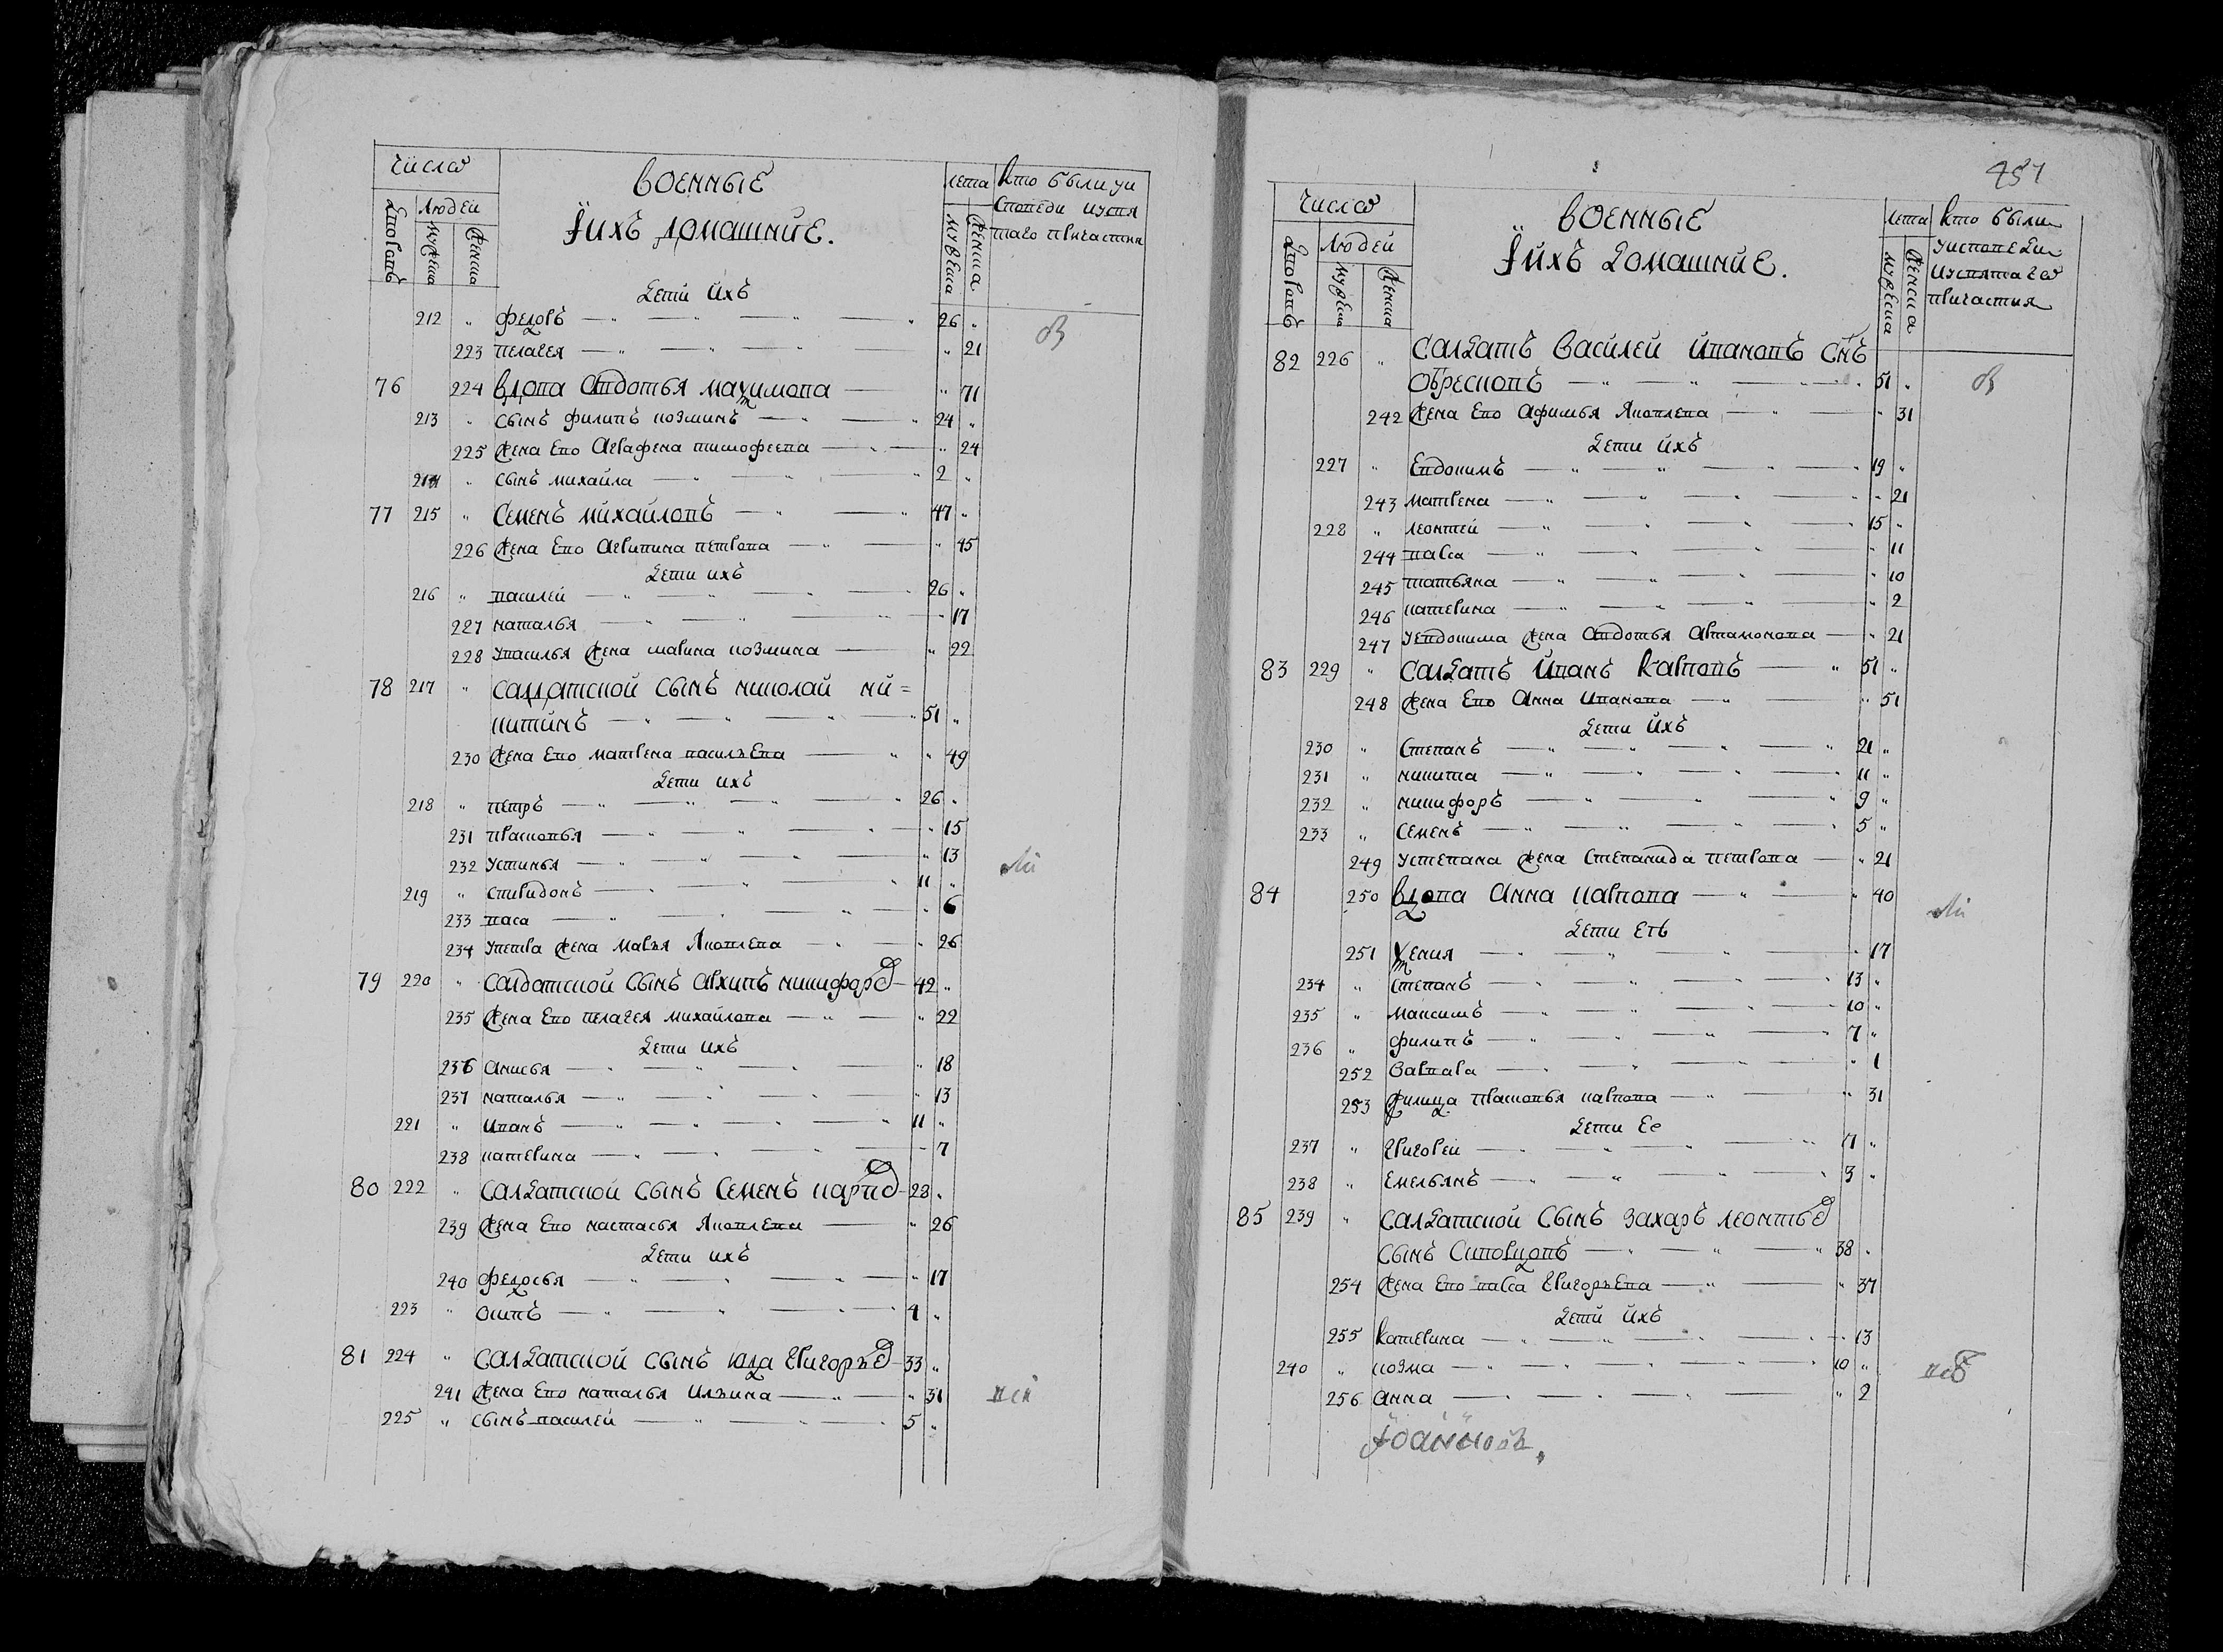 Число
военные
лета
кто были уи
людей
ї ихъ домашнйе.
споведи иусвя
таго причастия
дворовъ
мужеска
женска
мужеска
женска
дети ихъ
212 " федоръ 26 "
223 пелагея " 21
76 224 вдова авдотья маѯимова " 71
213 " сынъ филипъ козминъ 24 "
225 жена ево аграфена тимофеева " 24
214 " сынъ михайла 2 "
77 215 " семенъ михайловъ 47 "
226 жена ево агрипина петрова " 45
дети ихъ
216 " василей 26 "
227 наталья " 17
228 увасилья жена марина козмина " 22
78 217 " салдатской сынъ николай ни=
китинъ 51 "
230 жена ево матрена васильева " 49
дети ихъ
218 " петръ 26 "
231 прасковья " 15
232 устинья " 13
219 " спиридонъ 11 "
233 васа " 6
234 упетра жена марья яковлева " 26
79 220 " салдатской сынъ архипъ никифоръ 42 "
235 жена ево пелагея михайлова " 22
дети ихъ
236 анисья " 18
237 наталья " 13
221 " иванъ 11 "
238 катерина " 7
80 222 " салдатской сынъ семенъ карпъ 28 "
239 жена ево настасья яковлева " 26
дети ихъ
240 федосья " 17
223 " осипъ 4 "
81 224 " салдатской сынъ юда григорье 33 "
241 жена ево наталья ильина " 31
225 " сынъ василей 5 "
451
Число
военные
лета
кто были
людей
ї ихъ домашнйе.
уисповеди
иусвятаго
причастия
дворовъ
мужеска
женска
мужеска
женска
82 226 " салдатъ василей ивановъ снъ
обресковъ 51 "
242 жена ево афимья яковлева " 31
дети ихъ
227 " евдокимъ 19 "
243 матрена " 21
228 " леонтей 15 "
244 парса " 11
245 татьяна " 10
246 катерина " 2
247 уевдокима жена авдотья артамонова " 21
83 229 " салдатъ иванъ карповъ 51 "
248 жена ево анна иванова " 51
дети ихъ
230 " степанъ 21 "
231 " никита 11 "
232 " никифоръ 9 "
233 " семенъ 5 "
249 устепана жена степанида петрова " 21
84 250 вдова анна карпова " 40
дети еѣ
251 ѯения " 17
234 " степанъ 13 "
235 " максимъ 10 "
236 " филипъ 7 "
252 варвара " 1
253 прасковья карпова " 31
дети ее
237 " григорей 7 "
238 " емельянъ 3 "
85 239 " салдатской сынъ захаръ леонтье
сынъ 38 "
254 жена ево парса григорьева " 37
дети ихъ
255 катерина " 13
240 " козма 10 "
256 анна " 2
їоаннов